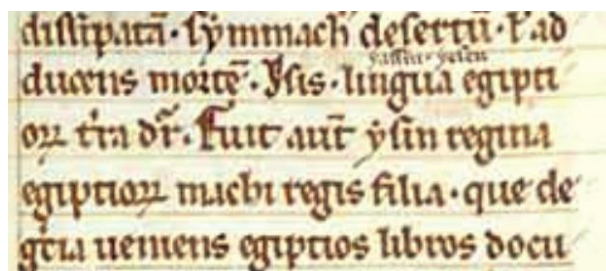 dissipatā · sÿmmach̄ desertū · ł ad
ducens mortē · Ysis · lingua egipti
oꝝ t̄ra dr̄ · Fuit aut̄ ẏsin regina
egiptioꝝ machi regis filia · que de
gr̄cia ueniens egiptios libros docu